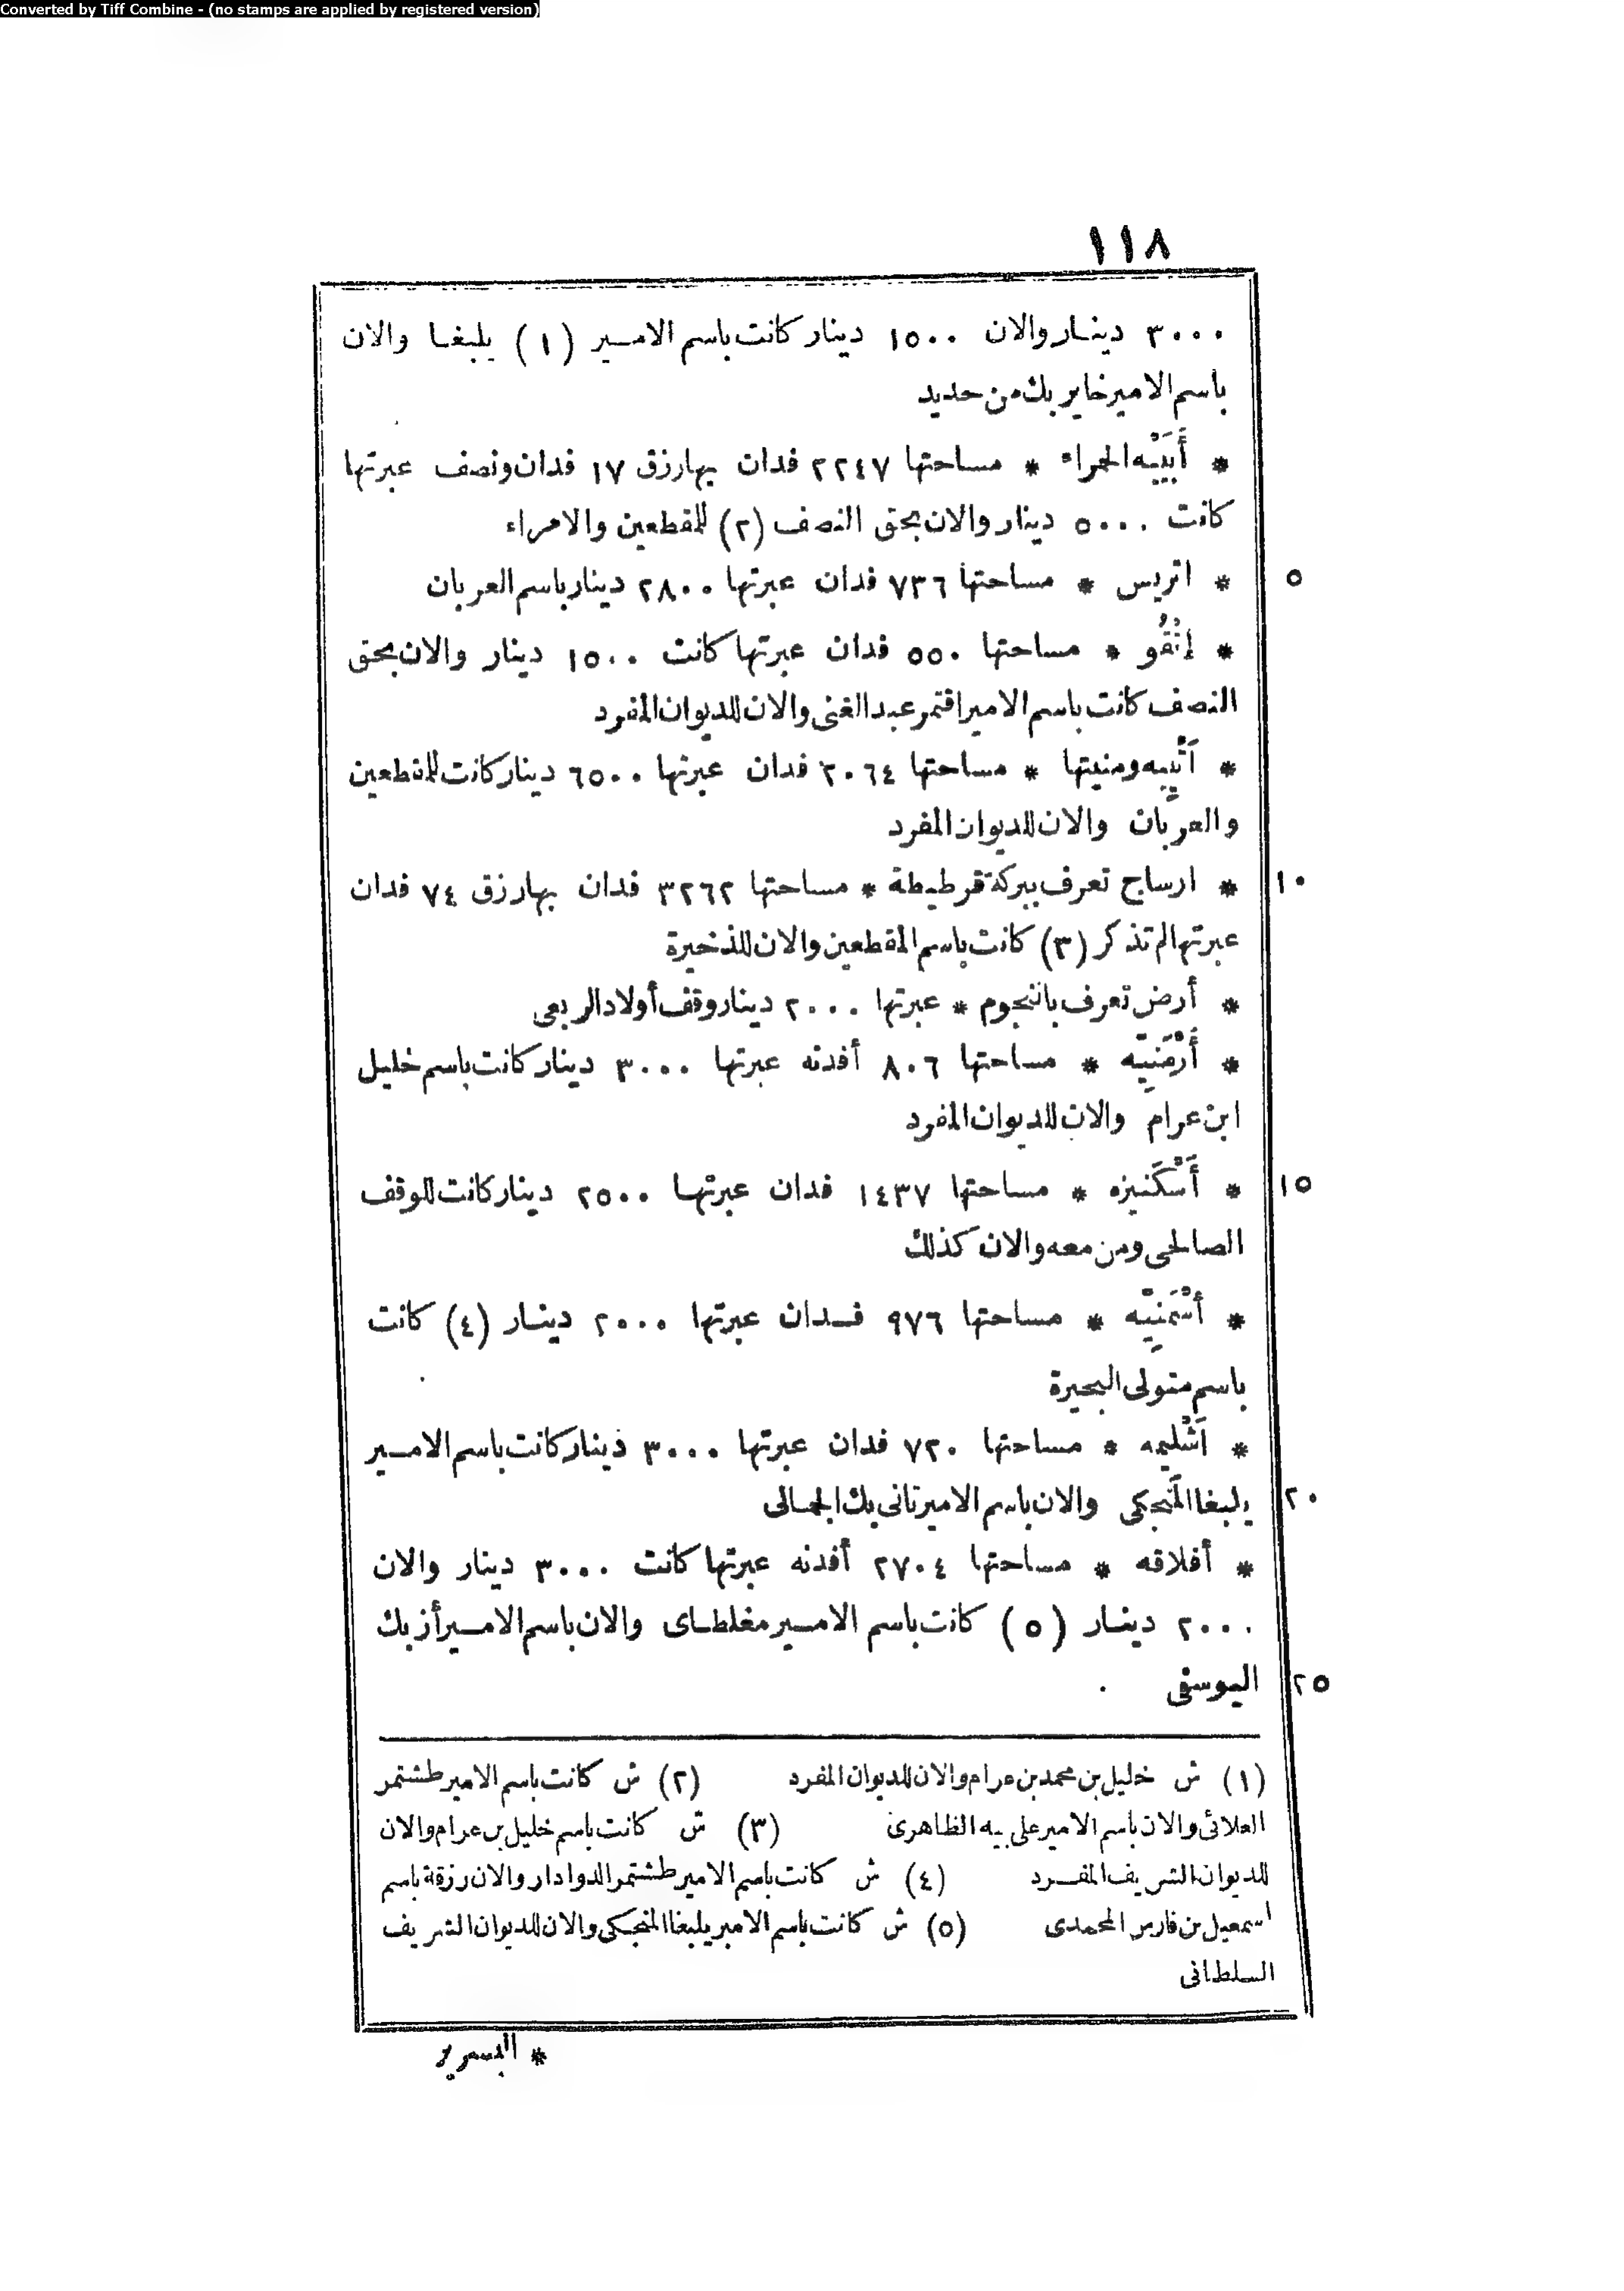 Converted by Tiff Combine - (no stamps are applied by registered version)
١١٨
٣٠٠٠ دينار والان ١٥٠٠ دينار كانت باسم الامير (١) يلبغا والان
باسم الامير خاير بك من حديد
* أَبيَّه الحمراء * مساحتها ٢٢٤٧ فدان بها رزق ١٧ فدان ونصف عبرتها
كانت ٥٠٠٠ دينار والان بحق النصف (٢) للمقطعين والامراء
٥ * اتريس * مساحتها ٧٣٦ فدان عبرتها ٢٨٠٠ دينار باسم العربان
* إتْقُو * مساحتها ٥٥٠ فدان عبرتها كانت ١٥٠٠ دينار والان بحق
النصف كانت باسم الامير اقتمر عبد الغنى والان للديوان المفرد
* ومنيتها * مساحتها ٢٠٦٤ فدان عبرتها ٦٥٠٠ دينار كانت للمقطعين
والعربان والان للديوان المفرد
١٠ * ارساج تعرف ببركة قرطيطة * مساحتها ٣٢٦٢ فدان بها رزق ٧٤ فدان
عبرتها لم تذكر (٣) كانت باسم المقطعين والان للذخيرة
* أرض تعرف بالنجوم * عبرتها ٢٠٠٠ دينار وقف أولاد الربعى
* أَرْمَنِيَّه * مساحتها ٨٠٦ أفدنه عبرتها ٣٠٠٠ دينار كانت باسم خليل
ابن عرام والان للديوان المفرد
١٥ * أَسْكَنيزه * مساحتها ١٤٣٧ فدان عبرتها ٢٥٠٠ دينار كانت للوقف
الصالحى ومن معه والان كذلك
* أَسْمَنِيَّه * مساحتها ٩٧٦ فدان عبرتها ٢٠٠٠ دينار (٤) كانت
باسم متولى البحيرة
* اَشْليمه * مساحتها ٧٢٠ فدان عبرتها ٣٠٠٠ دينار كانت باسم الامير
٢٠ يلبغا المَنجكى والان باسم الامير تانى بك الجمالى
* أفلاقه * مساحتها ٢٧٠٤ أفدنه عبرتها كانت ٣٠٠٠ دينار والان
٢٠٠٠ دينار (٥) كانت باسم الامير مغلطاى والان باسم الامير أزبك
٢٥ اليوسفى
(١) ش خليل بن محمد بن عرام والان للديوان المفرد (٢) ش كانت باسم الامير طشتمر
العلائى والان باسم الامير على بيه الظاهرى (٣) ش كانت باسم خليل بن عرام والان
للديوان الشريف المفرد (٤) ش كانت باسم الامير طشتمر الدوادار والان رزقة باسم
اسمعيل بن فارس المحمدى (٥) ش كانت باسم الامير يلبغا المنجكى والان للديوان الشريف
السلطانى
*